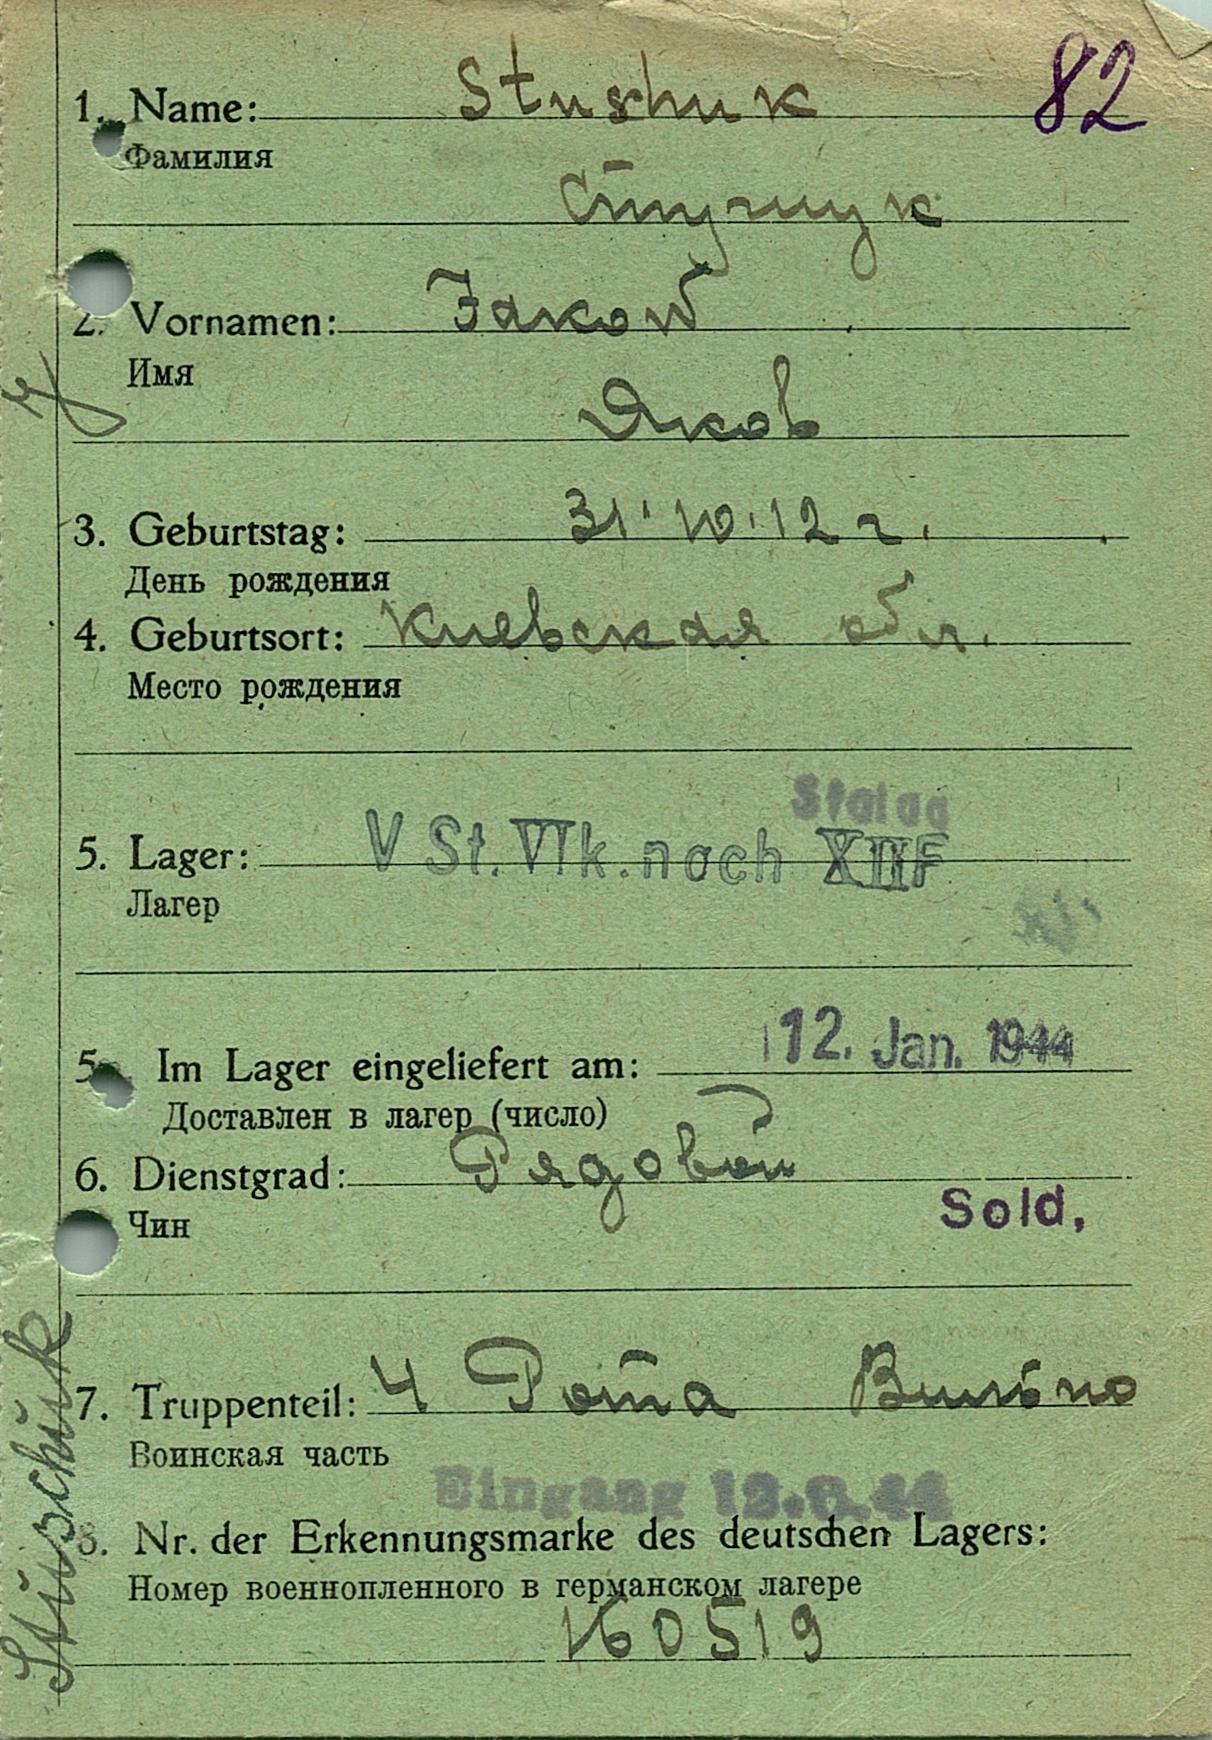 82
1. Name: Stushuk
Фамилия
Стущук
2. Vornamen: Jakob
Имя
Яков
3. Geburtstag: 31.10.12 г.
День рождения
4. Geburtsort: Киевская обл.
Место рождения
Stalag
5. Lager: V St. VI k. nach XII F
Лагер
5. Im Lager eingeliefert am: 12. Jan. 1944
Доставлен в лагер (число)
6. Dienstgrad: Рядовой
Чин
Sold.
7. Truppenteil: 4 Рота Вильно
Воинская часть
Eingang
8. Nr. der Erkennungsmarke des deutschen Lagers:
Номер военнопленного в германском лагере
160519
Stuschuk